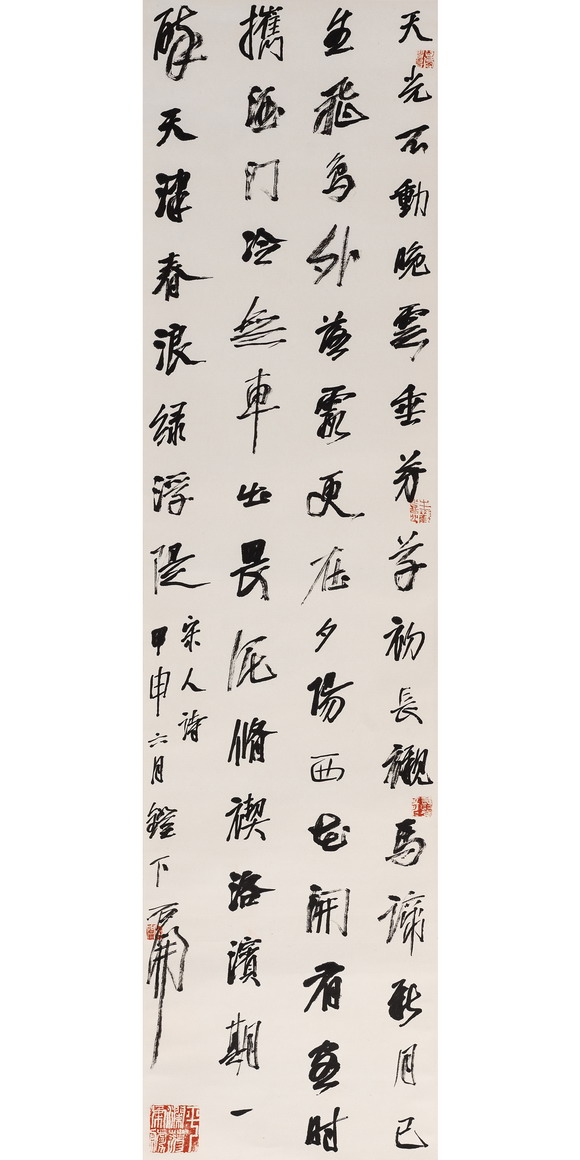 天光不動晚雲垂芳草初長襯馬蹄新月已
生飛鳥外落霞更在夕陽西花開有客時
攜酒門冷無車出畏泥脩禊洛濱期一
醉天津春浪綠浮隄
宋人詩
甲申六月鐙下石開